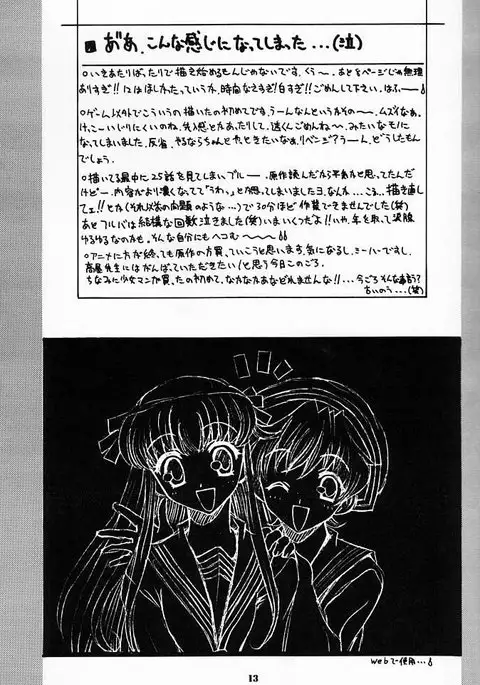 あぁあ、こんな感じになってしまった...(泣)
○いきあたりばったりで描き始めるもんじゃないです、くぅ〜。あと
ありすぎ!!12はほしかった。ていうか、時間なさすぎ!白すぎ!!ごめんして下さい、はふー
○ゲーム以外でこういうの描いたの初めてです。うーんなんというかその〜、ムズイなぁ。
けっこーいじりにくいのね。先入感とかあったりして。遠くごめんね〜、みたいなモノに
なってしまいました。反省。やるならちゃんとやっときたいなぁ。リベンジ?うーん、どうしたもん
でしょう。
○描いてる最中に25話を見てしまいブルー。原作読んだから平気かと思ってたんだ
けどー、内容がより濃くなってて「うわ、」とか感じてしまいましたヨ。なんか...こぅ...描き直し
てェ!!とか(それ以前の問題のような...)で30分ほど作業できませんでした(笑)
あとフルバは結構な回数泣きました(笑)いまいくつだよ!!いや、年を取って涙腺
ゆるゆるなのかも。そんな自分にもヘコむ〜
○アニメの方が終っても原作の方買っていこうと思います。気になるし、ミーハーですし。
高屋先生にはがんばっていただきたい!と思う今日このごろ。
ちなみに少女マンガ買ったの初めて。なかなかあなどれませんな!!...今ごろそんな事言う?
古いのう...(笑)
webで使用...
13